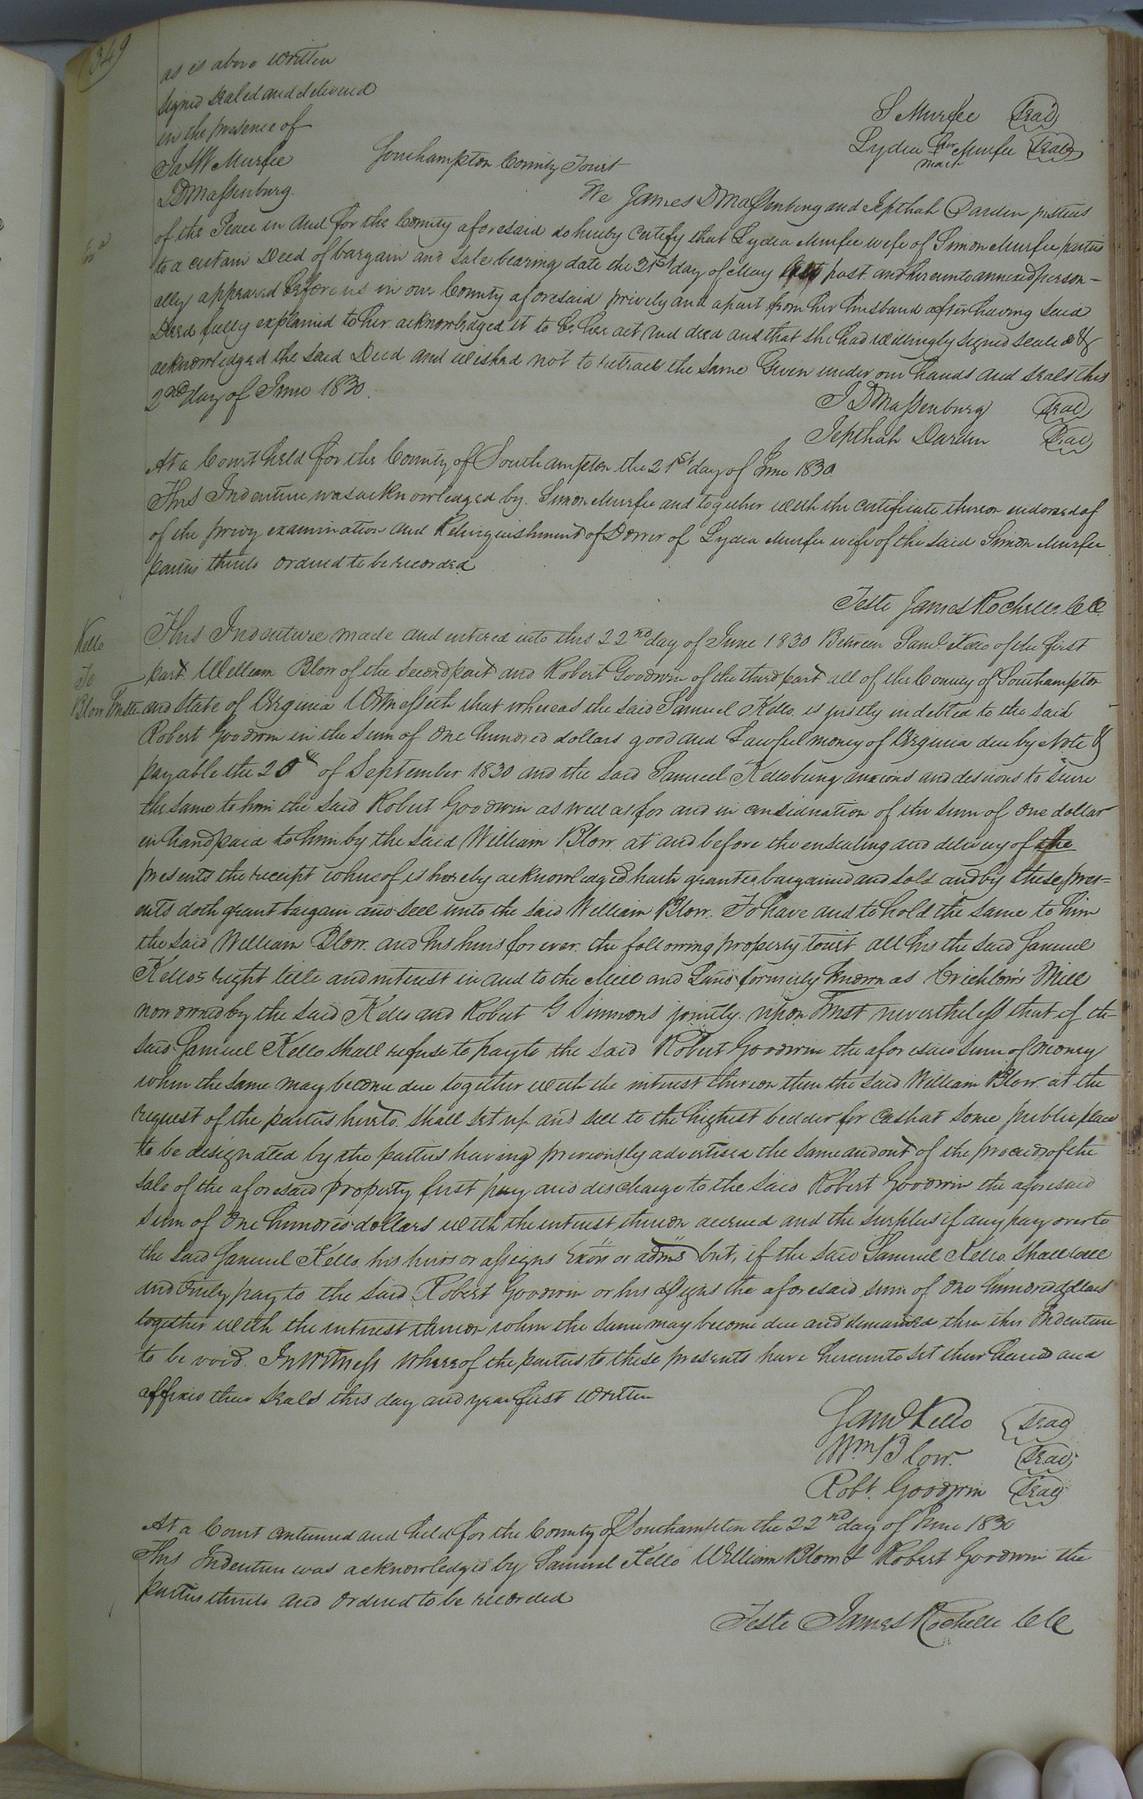 349
as is above written
signed sealed and delivered
in the presence of
S Murfee Seal
Lydia her mark Murfee Seal
Js W Murfee
JDMassenburg.
Southampton County Court
We James D Massenburg and Jepthah Darden justices
of the Peace in and for the County aforesaid do hereby certify that Lydia Murfee wife of Simon Murfee parties
to a certain Deed of bargain and sale bearing date the 21st day of May past and hereunto annexed person-
ally appeared before us in our County aforesaid privily and apart from her husband after having said
Deed fully explained to her acknowledged it to be her act and deed and that she had willingly signed sealed &
acknowledged the said Deed and wished not to retract the same Given under our hands and seals this
2nd day of June 1830.
J DMassenburg Seal
Jepthah Darden Seal
At a Court held for the County of Southampton the 21st day of June 1830
This Indenture was acknowledged by Simon Murfee and together with the certificate thereon endorsed of
of the privy examination and Relinquishment of Dower of Lydia Murfee wife of the said Simon Murfee
parties thereto ordered to be recorded
Teste James Rochelle CC
Kello
To
Blow Trustee
This Indenture made and entered into this 22nd day of June 1830 Between Saml Kello of the first
part William Blow of the second part and Robert Goodwin of the third part all of the County of Southampton
and State of Virginia Witnesseth that whereas the said Samuel Kello is justly indebted to the said
Robert Goodwin in the sum of One hundred dollars good and Lawful money of Virginia due by Note &
payable the 25th of September 1830 and the said Samuel Kello being anxious and desirous to secure
the same to him the said Robert Goodwin as well as for and in consideration of the sum of one dollar
in hand paid to him by the said William Blow at and before the ensealing and delivery of the
presents the receipt whereof is hereby acknowledged hath granted bargained and sold and by these pres=
ents doth grant bargain and sell unto the said William Blow. To have and to hold the same to him
the said William Blow and his heirs forever the following property towit all his the said Samuel
Kello's right title and interest in and to the Mill and Land formerly known as Crichlow's Mill
now owned by the said Kello and Robert G Simmons jointly upon Trust nevertheless that if the
said Samuel Kello shall refuse to pay to the said Robert Goodwin the aforesaid sum of money
when the same may become due together with the interest thereon then the said William Blow at the
request of the parties hereto shall set up and sell to the highest bidder for cash at some public place
to be designated by the parties having previously advertised the same and out of the proceeds of the
sale of the aforesaid property first pay and discharge to the said Robert Goodwin the aforesaid
sum of One hundred dollars with the interest thereon accrued and the surplus if any pay over to
the said Samuel Kello his heirs or assigns Exors or adms but, if the said Samuel Kello shall well
and truly pay to the said Robert Goodwin or his assigns the aforesaid sum of One hundred dollars
together with the interest thereon when the same may become due and demanded then this Indenture
to be void. In Witness whereof the parties to these presents have hereunto set their hands and
affixed their seals this day and year first written
Saml Kello Seal
Wm Blow. Seal
Robt. Goodwin Seal
At a Court continued and held for the County of Southampton the 22nd day of June 1830
This Indenture was acknowledged by Samuel Kello William Blow & Robert Goodwin the
parties thereto and ordered to be recorded
Teste James Rochelle CC